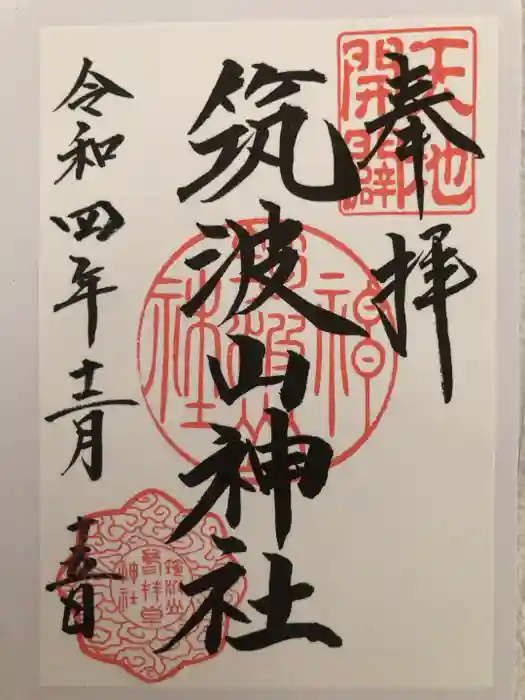 奉拝
天地
開闢
筑波山神社
神
社
令和四年十二月十五日
筑波山
神社